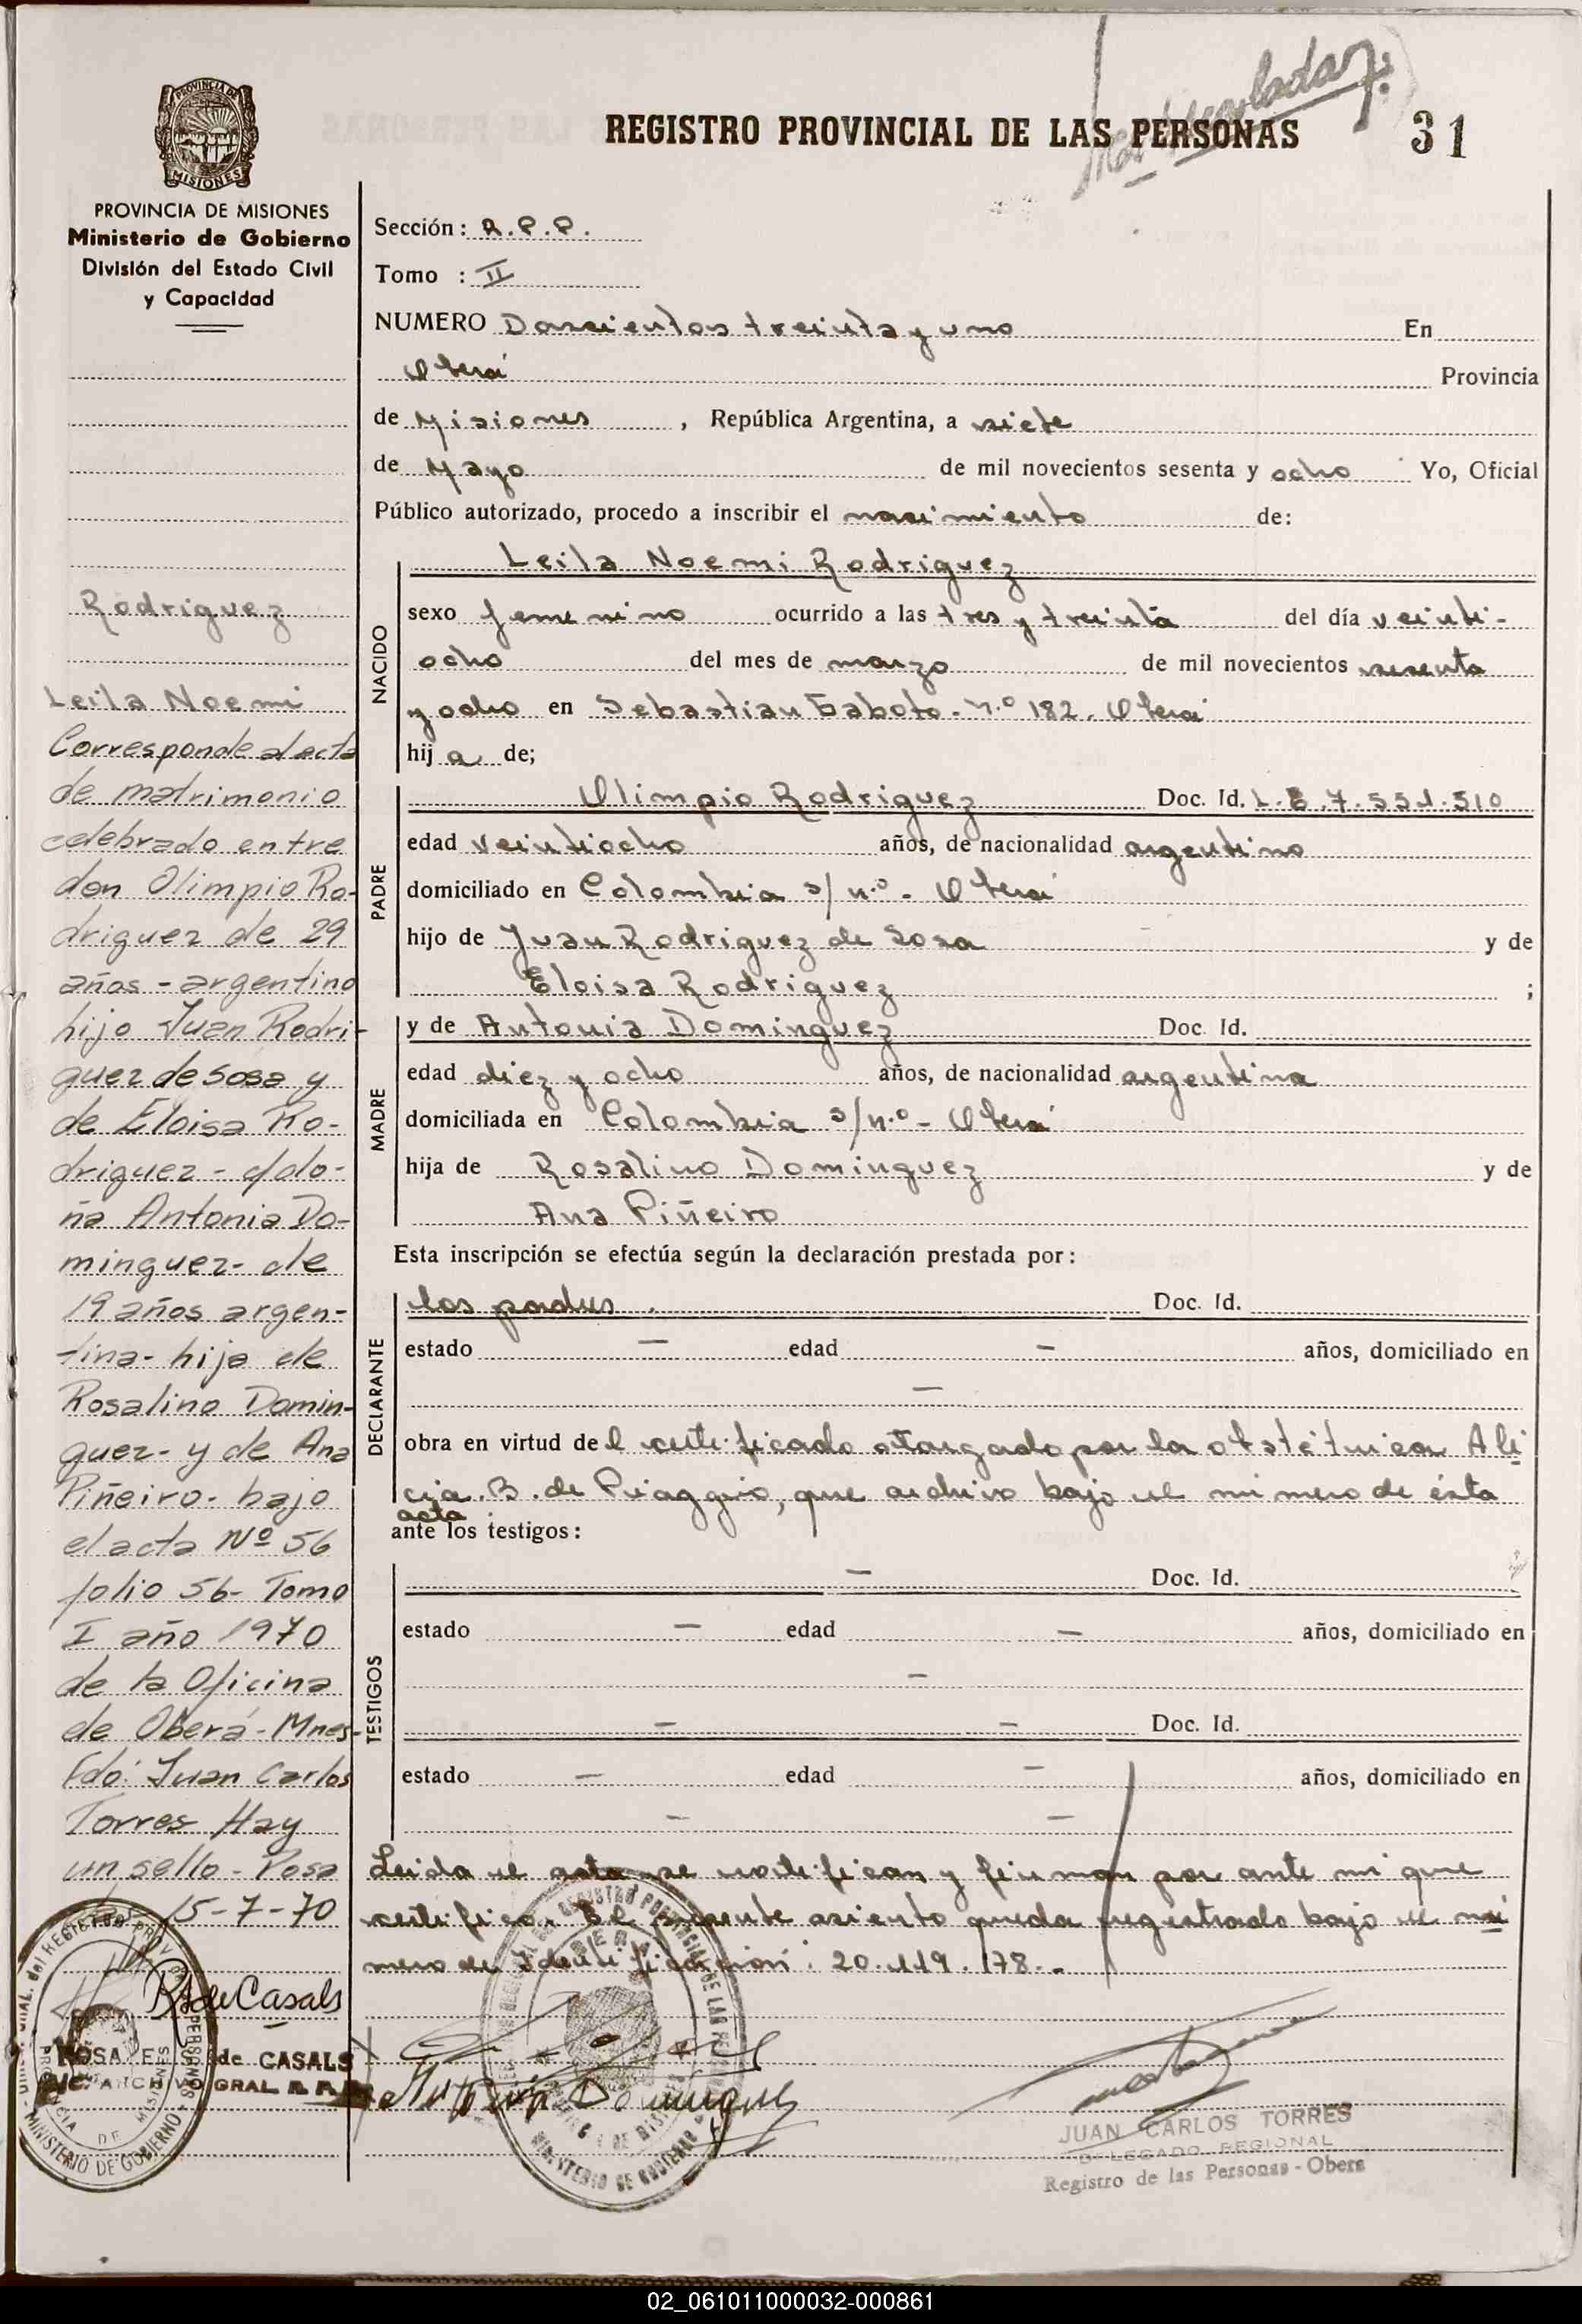 REGISTRO PROVINCIAL DE LAS PERSONAS
31
PROVINCIA DE
MISIONES
PROVINCIA DE MISIONES
Ministerio de Gobierno
División del Estado Civil
y Capacidad
Rodriguez
Leila Noemi
Corresponde al acta
de matrimonio
celebrado entre
don Olimpio Ro-
driguez de 29
años - argentino
hijo Juan Rodri-
guez de Sosa y
de Eloisa Ro-
driguez - c/do-
ña Antonia Do-
minguez - de
19 años argen-
tina - hija de
Rosalino Domin-
guez - y de Ana
Piñeiro - bajo
el acta Nº 56
folio 56 - Tomo
I año 1970
de la Oficina
de Oberá - Mnes-
Fdo: Juan Carlos
Torres Hay
un sello - Posa
15-7-70
R. de Casals
ROSA E. de CASALS
ARCHIVO GRAL
MINISTERIO DE GOBIERNO
Sección: R.P.P.
Tomo : II
NUMERO Doscientos treinta y uno En
Oberá Provincia
de Misiones, República Argentina, a siete
de Mayo de mil novecientos sesenta y ocho Yo, Oficial
Público autorizado, procedo a inscribir el nacimiento de:
NACIDO
Leila Noemi Rodriguez
sexo femenino ocurrido a las tres y treinta del día veinti-
ocho del mes de marzo de mil novecientos sesenta
y ocho en Sebastian Gaboto - N.º 182. Oberá
hija de;
PADRE
Olimpio Rodriguez Doc. Id. L.E 7.551.510
edad veintiocho años, de nacionalidad argentino
domiciliado en Colombia s/n.º - Oberá
hijo de Juan Rodriguez de Sosa y de
Eloisa Rodriguez ;
MADRE
y de Antonia Dominguez Doc. Id.
edad diez y ocho años, de nacionalidad argentina
domiciliada en Colombia s/n.º - Oberá
hija de Rosalino Dominguez y de
Ana Piñeiro
Esta inscripción se efectúa según la declaración prestada por:
DECLARANTE
los padres. Doc. Id.
estado — edad — años, domiciliado en
—
obra en virtud del certificado otorgado por la obstétrica Ali
cia. B. de Piaggio, que archivo bajo el número de ésta
acta
ante los testigos:
TESTIGOS
— Doc. Id.
estado — edad — años, domiciliado en
—
— — Doc. Id.
estado — edad — años, domiciliado en
— —
Leida el acta se ratifican y firman por ante mi que
certifico. El presente asiento queda registrado bajo el nú
mero de Identificación: 20.119.178.-
Antonia Dominguez
MINISTERIO DE GOBIERNO
JUAN CARLOS TORRES
DELEGADO REGIONAL
Registro de las Personas - Obera
02_061011000032-000861